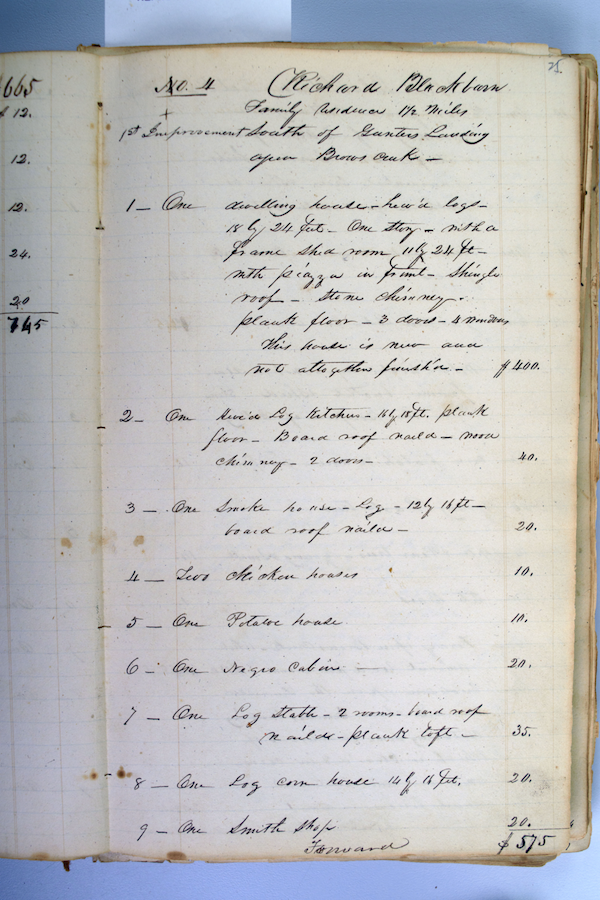 $665
$ 12.
12.
12.
24.
20
745
25.
No. 4 Richard Blackburn
Family residence 1 1/2 Miles
1st Improvement South of Gunters Landing
upon Brows creek —
1 — One dwelling house — hew'd logs —
18 by 24 feet — One story — with a
frame shed room 11 by 24 ft —
with piazza in front — Shingle
roof — Stone chimney.
plank floor — 3 doors — 4 windows
This house is new and
not altogether finish'd — $400.
2 — One hew'd Log Kitchen — 16 by 18 ft. plank
floor — Board roof naild — wood
chimney — 2 doors — 40.
3 — One Smoke house — Log — 12 by 16 ft —
board roof naild — 20.
4 — Two Chicken houses 10.
5 — One Potatoe house 10.
6 — One Negro Cabin — 20.
7 — One Log Stable — 2 rooms — board roof
naild — plank loft — 35.
8 — One Log corn house 14 by 16 feet. 20.
9 — One Smith Shop 20.
Forward $575